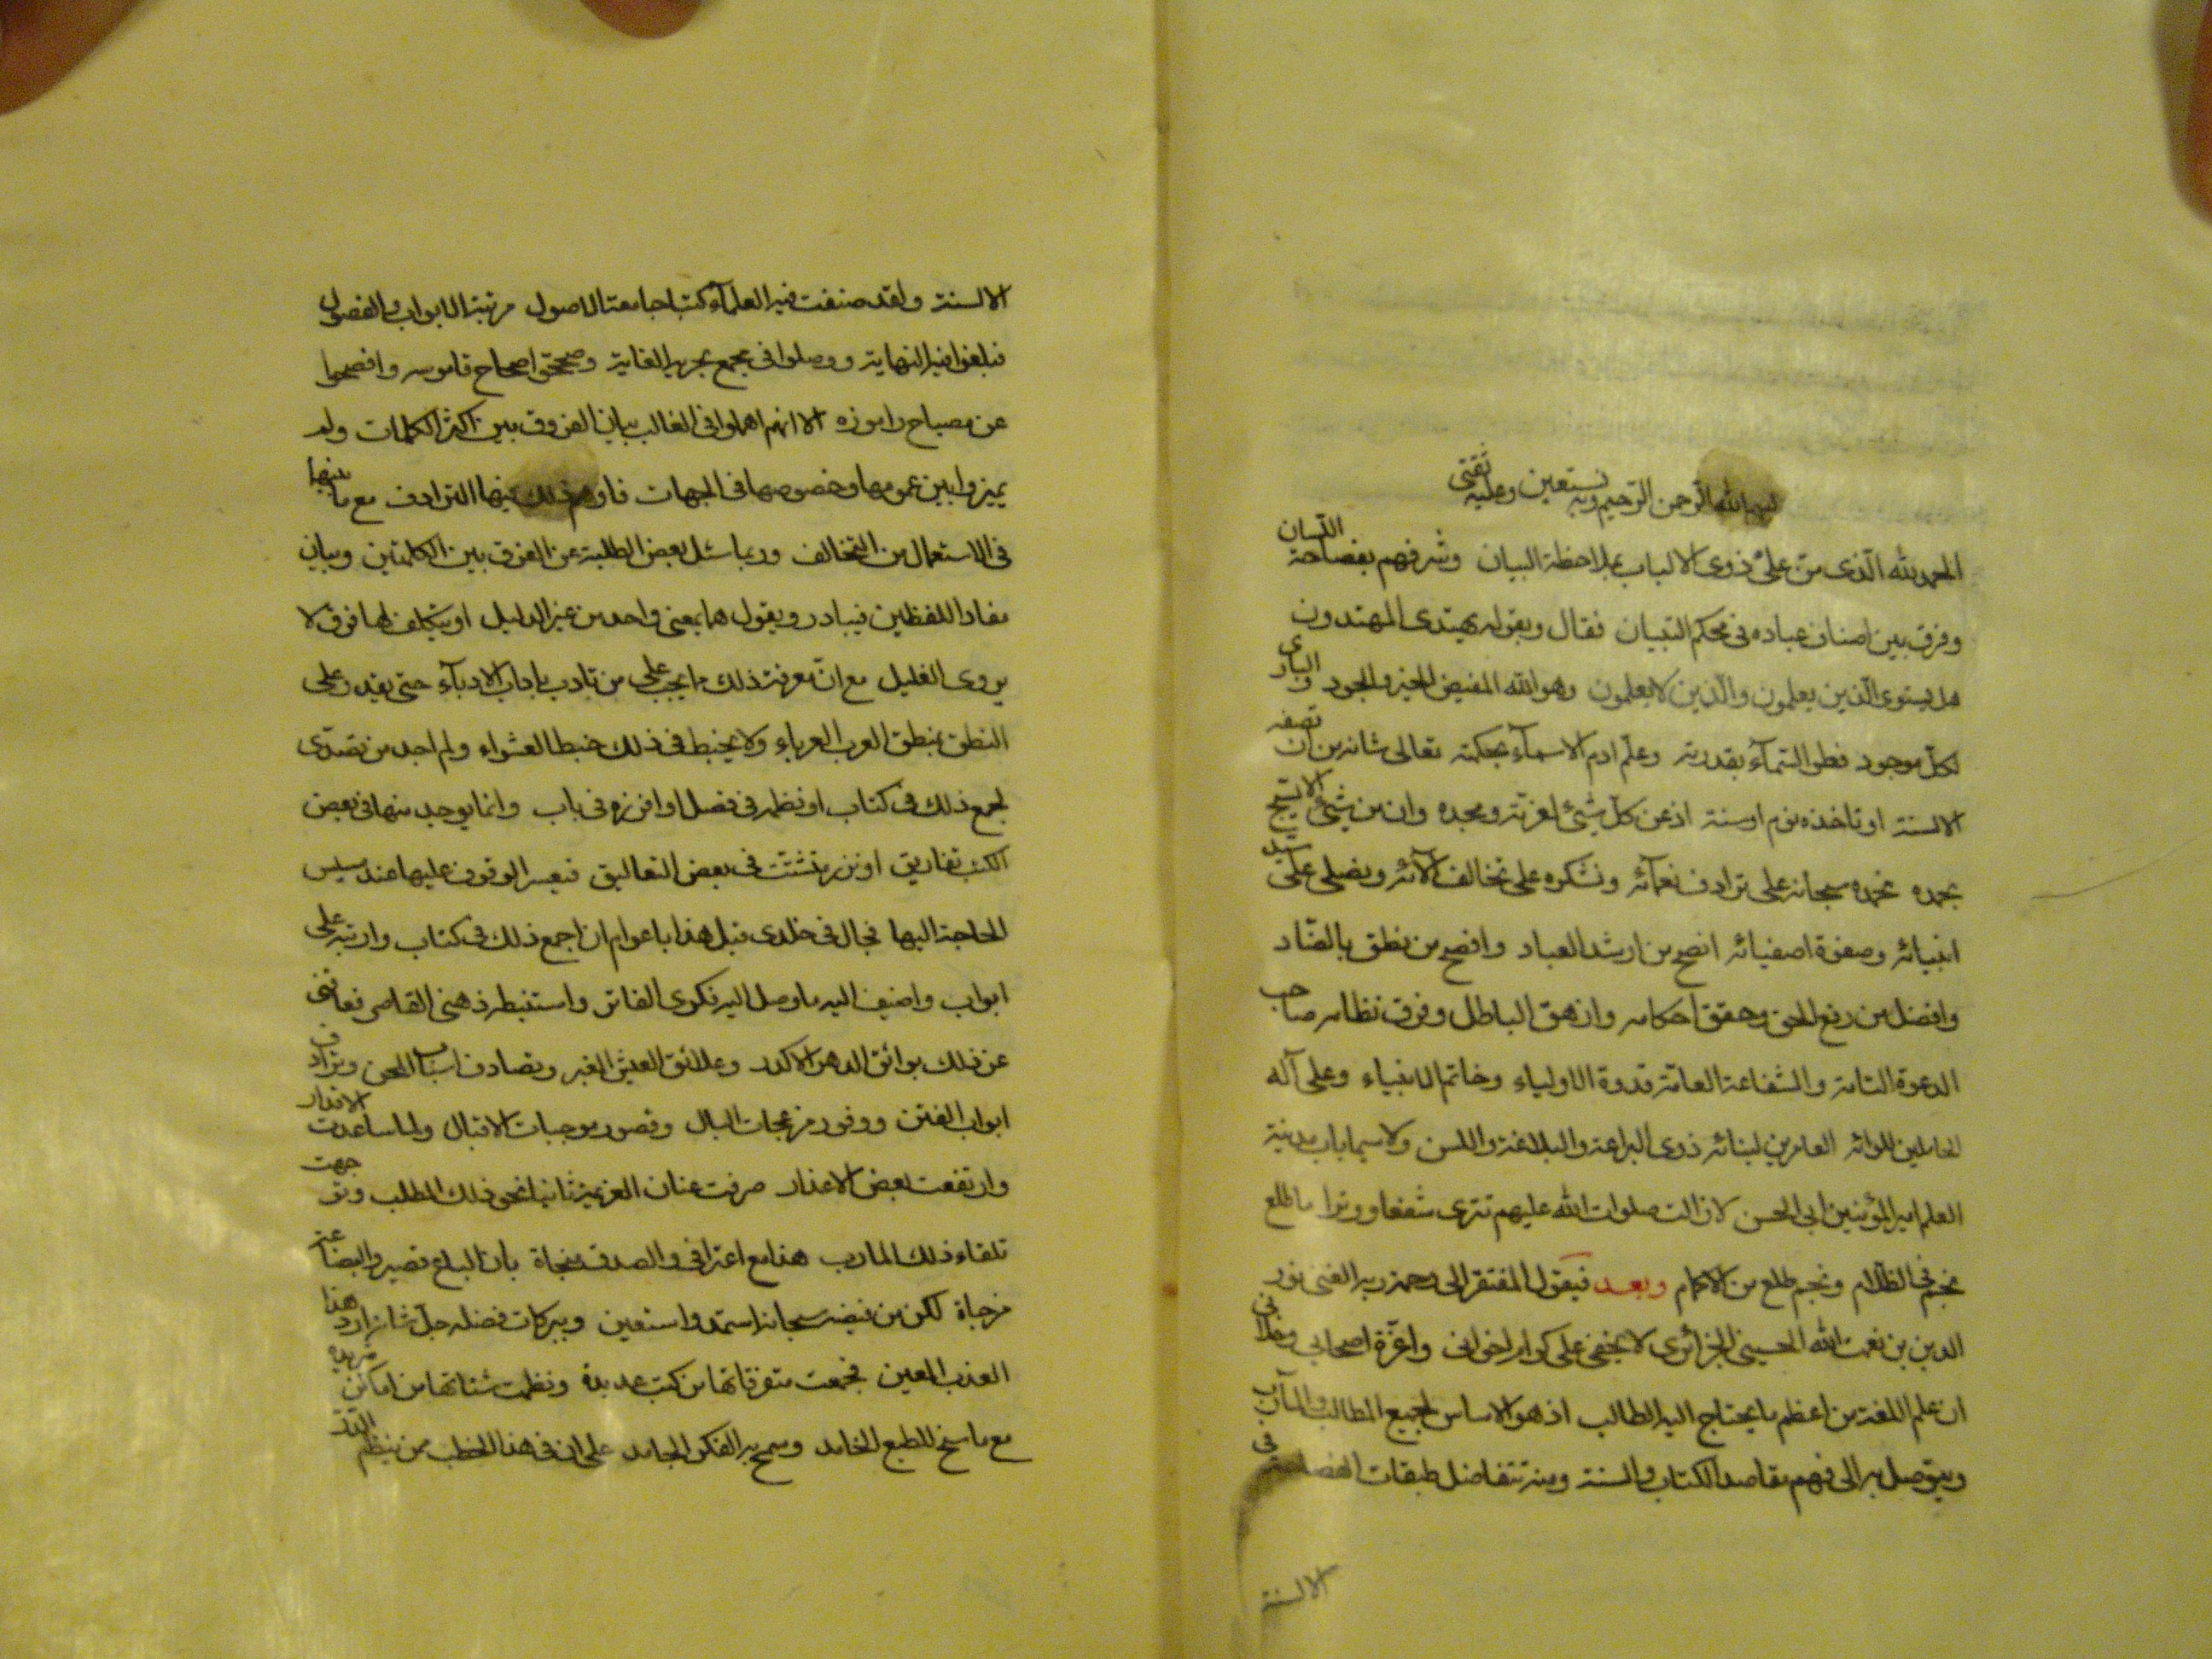 بسم الله الرحمن الرحيم وبه نستعين وعليه ثقتي
الحمد لله الذي منّ على ذوي الالباب بملاحظة البيان وشرفهم بفصاحة اللسان
وفرق بين اصناف عباده في محكم التبيان فقال وبقوله يهتدي المهتدون
هل يستوي الذين يعلمون والذين لا يعلمون وهو الله المفيض للخير والجود والباري
لكل موجود فطر السمآء بقدرته وعلم ادم الاسمآء بحكمته تعالى شانه من ان تصفه
الالسنة او تاخذه نوم او سنة اذعن كل شيء لعزته ومجده وان من شيء الا يسبح
بحمده نحمده سبحانه على ترادف نعمآئه ونشكره على تخالف الآئه ونصلي على سيد
انبيائه وصفوة اصفيائه انصح من ارشد العباد وافصح من نطق بالضاد
وافضل من رفع الحق وحقق احكامه وازهق الباطل وفرق نظامه صاحب
الدعوة التامة والشفاعة العامة قدوة الاولياء وخاتم الانبياء وعلى آله
الحاملين للوائه العامرين لبنائه ذوي البراعة والبلاغة واللسن ولا سيما باب مدينة
العلم امير المؤمنين ابي الحسن لا زالت صلوات الله عليهم تترى شفعا ووترا ما طلع
نجم في الظلام ونجم طلع من الاكمام وبعد فيقول المفتقر الى رحمة ربه الغني نور
الدين بن نعمت الله الحسيني الجزائري لا يخفى على كرام اخواني واعزة اصحابي وخلاني
ان علم اللغة من اعظم ما يحتاج اليه الطالب اذ هو الاساس لجميع المطالب والمآرب
وبه يتوصل الى فهم مقاصد الكتاب والسنة ومنه تتفاضل طبقات الفصاحة في
الالسنة
الالسنة ولقد صنفت فيه العلمآء كتبا جامعة الاصول مرتبة الابواب والفصول
فبلغوا فيه النهاية ووصلوا في مجمع بحريه الغاية وصححوا صحاح قاموسه وافصحوا
عن مصباح راموزه الا انهم اهملوا في الغالب بيان الفروق بين اكثر الكلمات ولم
يميزوا بين عمومها وخصوصها في الجهات فاوهم ذلك فيها الترادف مع ما بينها
في الاستعمال من التخالف وربما سئل بعض الطلبة عن الفرق بين الكلمتين وبيان
مفاد اللفظين فيبادر ويقول هما بمعنى واحد من غير الدليل او يتكلف لها فرق لا
يروي الغليل مع ان معرفة ذلك مما يجب على من تادب باداب الادبآء حتى يقدر على
النطق بمنطق العرب العرباء ولا يخبط في ذلك خبط العشواء ولم اجد من تصدى
لجمع ذلك في كتاب او نظمه في فصل او افرزه في باب وانما يوجد منها في بعض
الكتب تفاريق او نزر تشتت في بعض التعاليق فيعسر الوقوف عليها عند مسيس
الحاجة اليها فجال في خلدي قبل هذا باعوام ان اجمع ذلك في كتاب وارتبه على
ابواب واضيف اليه ما وصل اليه فكري الفاتر واستنبطه ذهني القاصر فعاقني
عن ذلك بوائق الدهر الاكدر وعلائق العيش الاغبر وتصادف اسباب المحن وترادف
ابواب الفتن ووفور مزعجات البال وقصور موجبات الاقبال ولما ساعدت الاقدار
وارتفعت بعض الاعذار صرفت عنان العزيمة ثانيا نحو ذلك المطلب وتوجهت
تلقاء ذلك المارب هذا مع اعترافي والصدق منجاة بان الباع قصير والبضاعة
مزجاة لكن من فيضه سبحانه استمد واستعين وببركات فضله جل شانه ارد هذا
العذب المعين فجمعت متفرقاتها من كتب عديدة ونظمت شتاتها من اماكن مزيده
مع ما سنح للطبع الخامد وسمح به الفكر الجامد على ان في هذا الخطب من ينظم الدرر